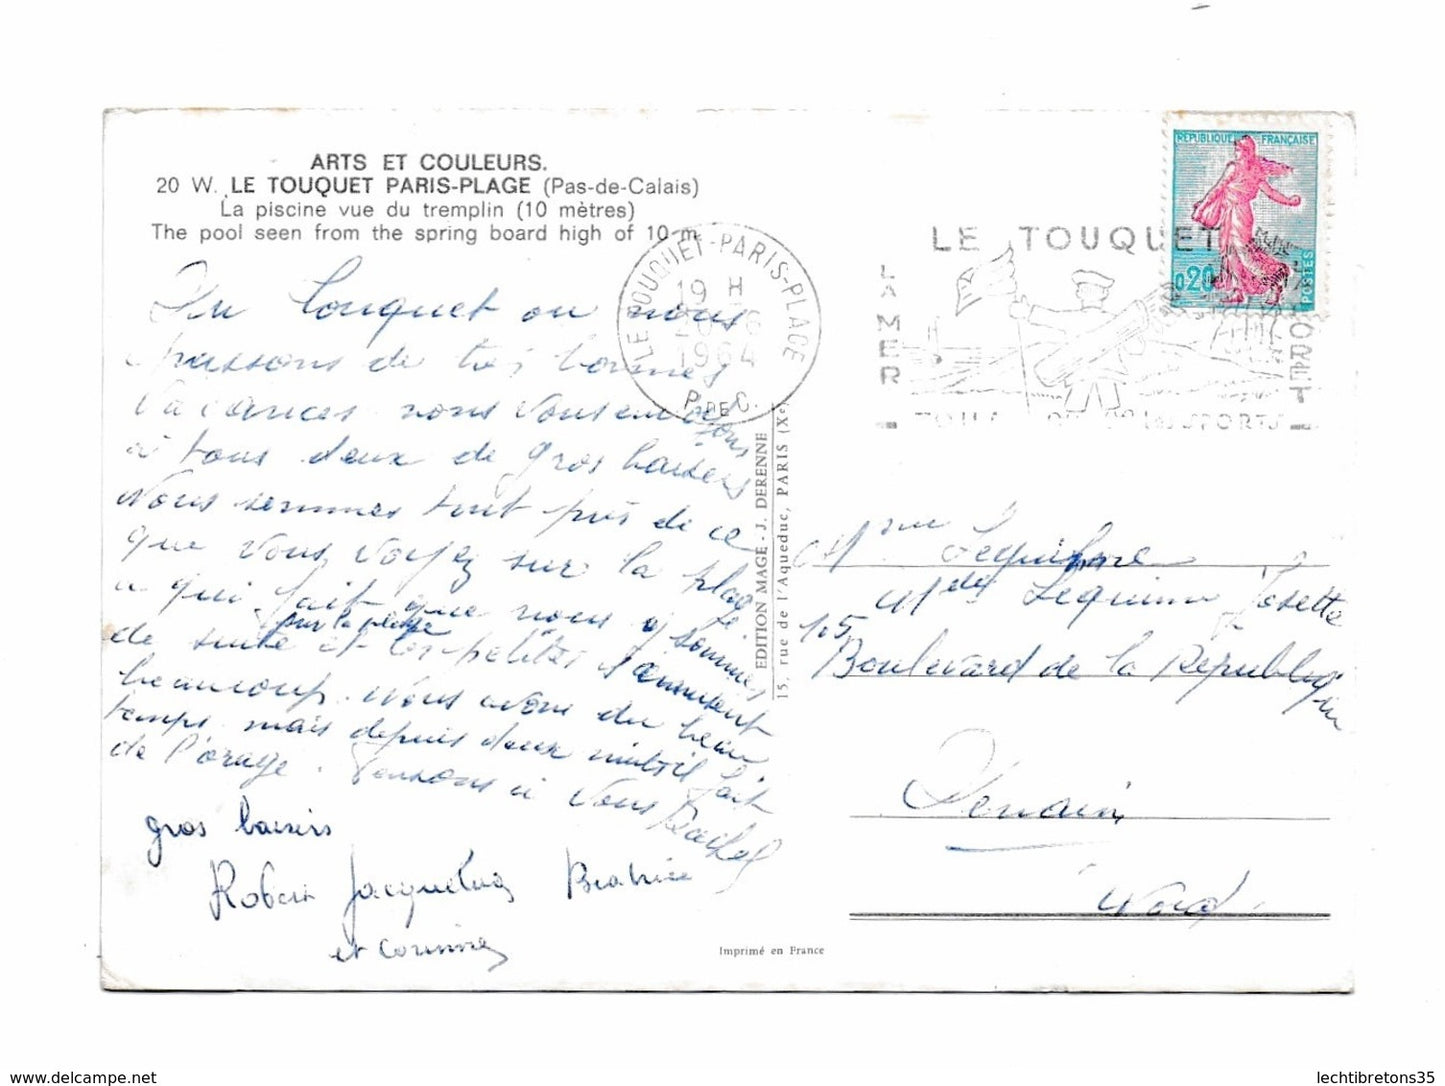 ARTS ET COULEURS.
20 W. LE TOUQUET PARIS-PLAGE (Pas-de-Calais)
La piscine vue du tremplin (10 mètres)
The pool seen from the spring board high of 10 m.
Du Touquet ou nous
passons de très bonnes
vacances nous vous envoyons
à tous deux de gros baisers
Nous sommes tout près de ce
que vous voyez sur la plage.
qui fait que nous y sommes
sur la plage
de suite et les petites s'amusent
beaucoup. nous avons du beau
temps mais depuis deux nuits il fait
de l'orage. Pensons à vous Rachel
gros baisers
Robert Jacqueline Beatrice
et corinne
LE TOUQUET-PARIS-PLAGE
19 H
20 -6
1964
P. DE C.
LE TOUQUET
LA MER
FORET
SPORTS
REPUBLIQUE FRANÇAISE
0,20
POSTES
EDITION MAGE - J. DERENNE
15, rue de l'Aqueduc, PARIS (Xe)
Mme Lequimme
Mdes Lequime Josette
105
Boulevard de la République
Denain
Nord
Imprimé en France
www.delcampe.net
lechtibretons35